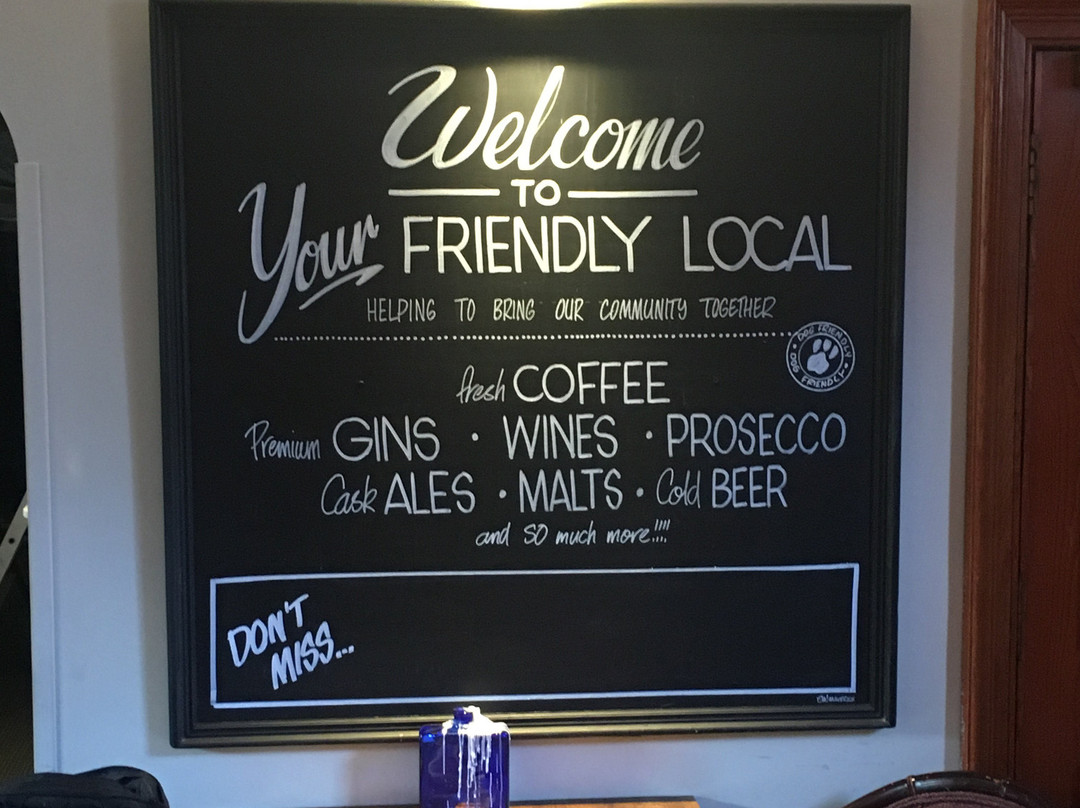 Welcome
TO
Your FRIENDLY LOCAL
HELPING TO BRING OUR COMMUNITY TOGETHER
DOG FRIENDLY • DOG FRIENDLY •
fresh COFFEE
Premium GINS • WINES • PROSECCO
Cask ALES • MALTS • Cold BEER
and SO much more!!!!
DON'T
MISS...